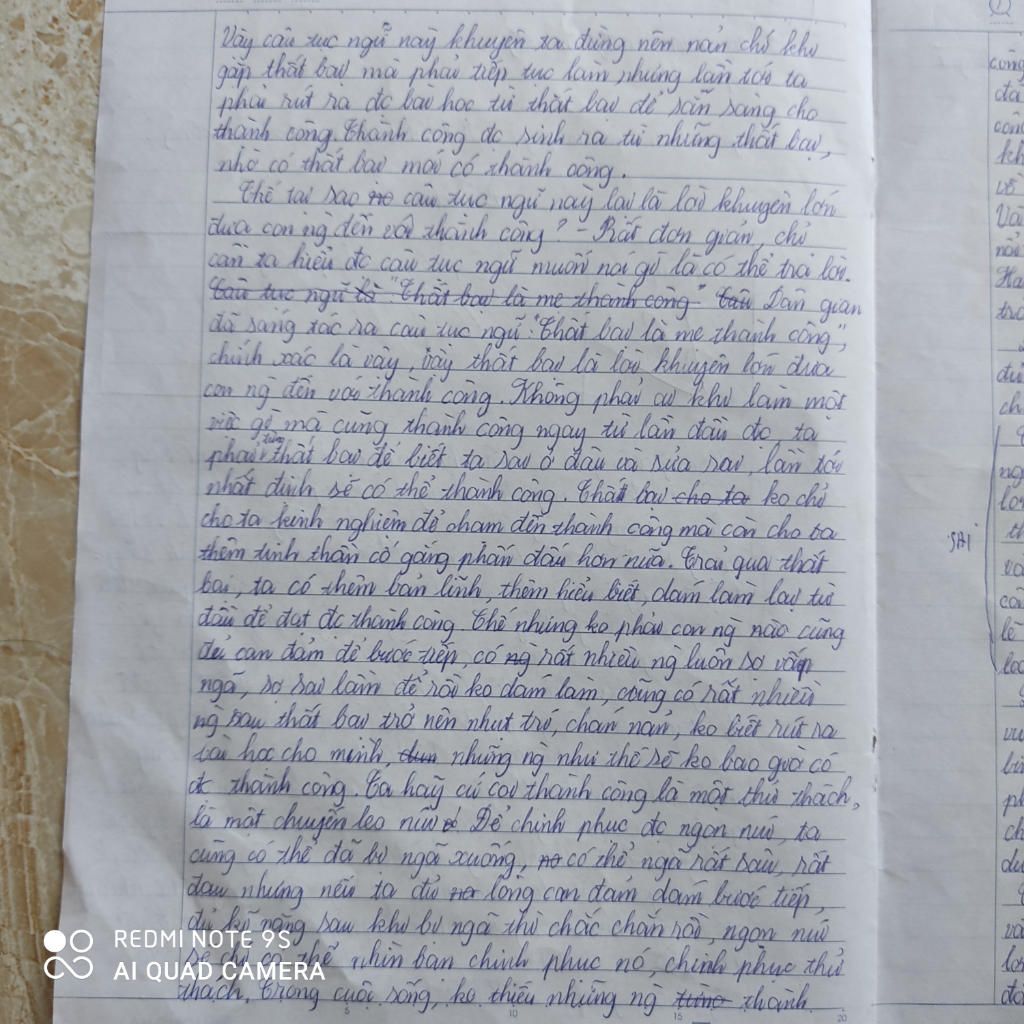 Vậy câu tục ngữ này khuyên ta đừng nên nản chí khi
gặp thất bại mà phải tiếp tục làm, nhưng lần tới ta
phải rút ra đc bài học từ thất bại để sẵn sàng cho
thành công. Thành công đc sinh ra từ những thất bại,
nhờ có thất bại mới có thành công.
Thế tại sao câu tục ngữ này lại là lời khuyên lớn
đưa con ng đến với thành công? - Rất đơn giản, chỉ
cần ta hiểu đc câu tục ngữ muốn nói gì là có thể trả lời.
Câu tục ngữ là "Thất bại là mẹ thành công" Câu Dân gian
đã sáng tác ra câu tục ngữ: "Thất bại là mẹ thành công",
chính xác là vậy, vậy thất bại là lời khuyên lớn đưa
con ng đến với thành công. Không phải cứ khi làm một
việc gì mà cũng thành công ngay từ lần đầu đc, ta
phải từng thất bại để biết ta sai ở đâu và sửa sai, lần tới
nhất định sẽ có thể thành công. Thất bại cho ta ko chỉ
cho ta kinh nghiệm để chạm đến thành công mà còn cho ta
thêm tinh thần cố gắng phấn đấu hơn nữa. Trải qua thất
bại, ta có thêm bản lĩnh, thêm hiểu biết, dám làm lại từ
đầu để đạt đc thành công. Thế nhưng ko phải con ng nào cũng
đủ can đảm để bước tiếp, có ng rất nhiều ng luôn sợ vấp
ngã, sợ sai lầm để rồi ko dám làm, cũng có rất nhiều
ng sau thất bại trở nên nhụt trí, chán nản, ko biết rút ra
bài học cho mình, những ng như thế sẽ ko bao giờ có
đc thành công. Ta hãy cứ coi thành công là một thử thách,
là một chuyến leo núi. Để chinh phục đc ngọn núi, ta
cũng có thể đã bị ngã xuống, có thể ngã rất sâu, rất
đau nhưng nếu ta đủ lòng can đảm dám bước tiếp,
đủ kĩ năng sau khi bị ngã thì chắc chắn rồi, ngọn núi
sẽ chỉ có thể nhìn bạn chinh phục nó, chinh phục thử
thách. Trong cuộc sống, ko thiếu những ng thành
SAI
REDMI NOTE 9S
AI QUAD CAMERA